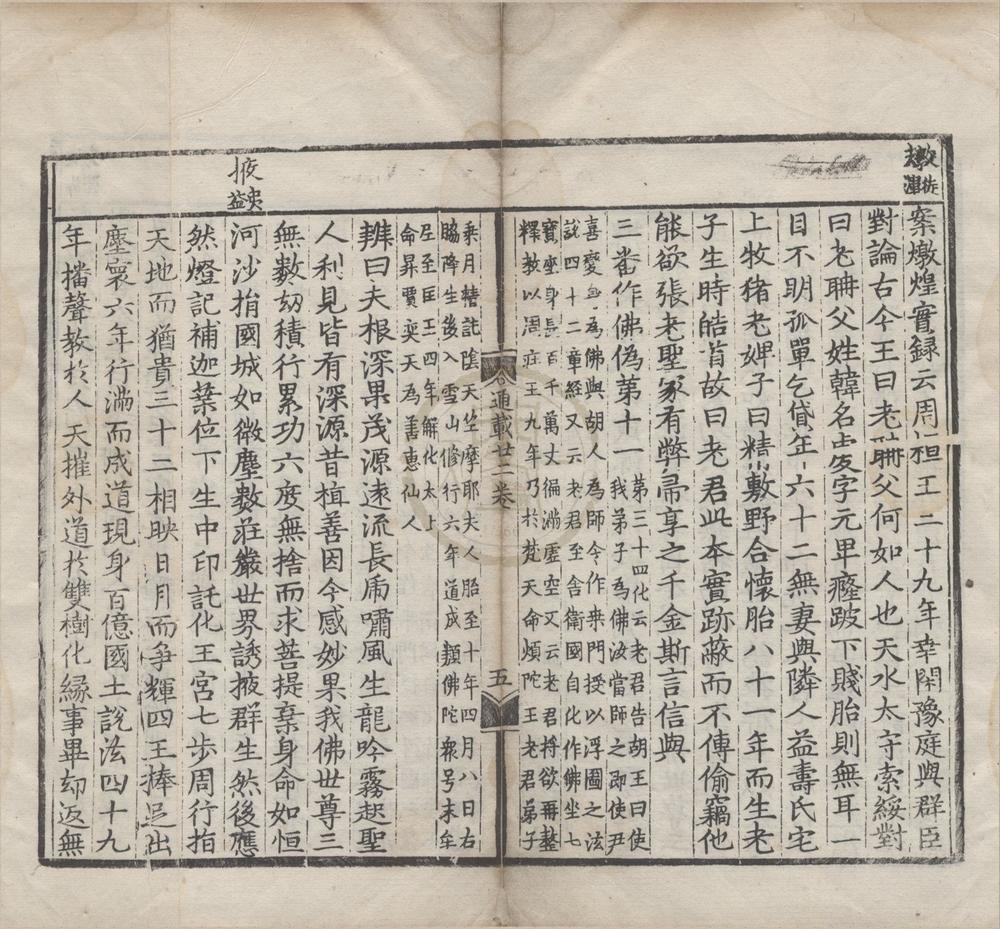 案燉煌實録云周桓王二十九年幸閑豫庭與群臣
對論古今王曰老聃父何如人也天水太守索綏對
曰老聃父姓韓名虔字元卑癃跛下賤胎則無耳一
目不明孤單乞貸年六十二無妻與隣人益壽氏宅
上牧猪老婢子曰精敷野合懷胎八十一年而生老
子生時皓首故曰老君此本實跡蔽而不傳偷竊他
能欲張老聖冢有弊帚享之千金斯言信與
三畨作佛偽第十一
第三十四化云老君告胡王曰使
我弟子為佛汝當師之即使尹
喜變身為佛與胡人為師令作桑門授以浮圖之法
說四十二章經又云老君至舍衛國自化作佛坐七
寶座身長百千萬丈徧滿虛空又云老君将欲再整
釋教以周莊王九年乃於梵天命煩陀王老君弟子
乘月精託陰天竺摩耶夫人胎至十年四月八日右
脇降生後入雪山修行六年道成類佛陀衆号末牟
尼至匡王四年解化太上
命昇賈奕天為善惠仙人
辨曰夫根深果茂源遠流長虎嘯風生龍吟霧起聖
人利見皆有深源昔植善因今感妙果我佛世尊三
無數劫積行累功六度無捨而求菩提棄身命如恒
河沙捐國城如微塵數莊嚴世界誘掖群生然後應
然燈記補迦葉位下生中印託化王宮七步周行指
天地而猶貴三十二相映日月而爭輝四王捧足出
塵寰六年行滿而成道現身百億國土說法四十九
年播聲教於人天摧外道於雙樹化縁事畢却返無
通載廿二卷
五
掖
夾益